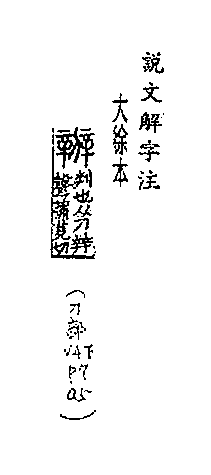 說文解字注
大徐本
辨 判也从刀辡
聲蒲莧切
(刀部V4下P7a5)